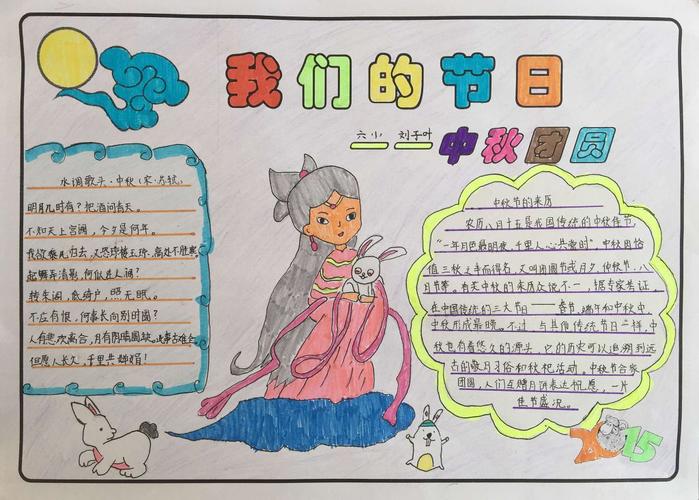 我们的节日
六小 刘子叶
中秋团圆
水调歌头·中秋(宋·苏轼)
明月几时有?把酒问青天。
不知天上宫阙,今夕是何年。
我欲乘风归去,又恐琼楼玉宇,高处不胜寒
起舞弄清影,何似在人间?
转朱阁,低绮户,照无眠。
不应有恨,何事长向别时圆?
人有悲欢离合,月有阴晴圆缺,此事古难全
但愿人长久,千里共婵娟!
中秋节的来历
农历八月十五是我国传统的中秋佳节,
"一年月色最明夜,千里人心共赏时"中秋因恰
值三秋之半而得名,又叫团圆节或月夕,仲秋节,八
月节等。有关中秋的来历众说不一,据专家考证,
在中国传统的三大节日——春节,端午和中秋中,
中秋形成最晚。不过,与其他传统节日一样,中
秋也有着悠久的源头,它的历史可以追溯到远
古的敬月习俗和秋祀活动。中秋节合家
团圆,人们在赏月所表达祝愿,一片
佳节盛况。
2015